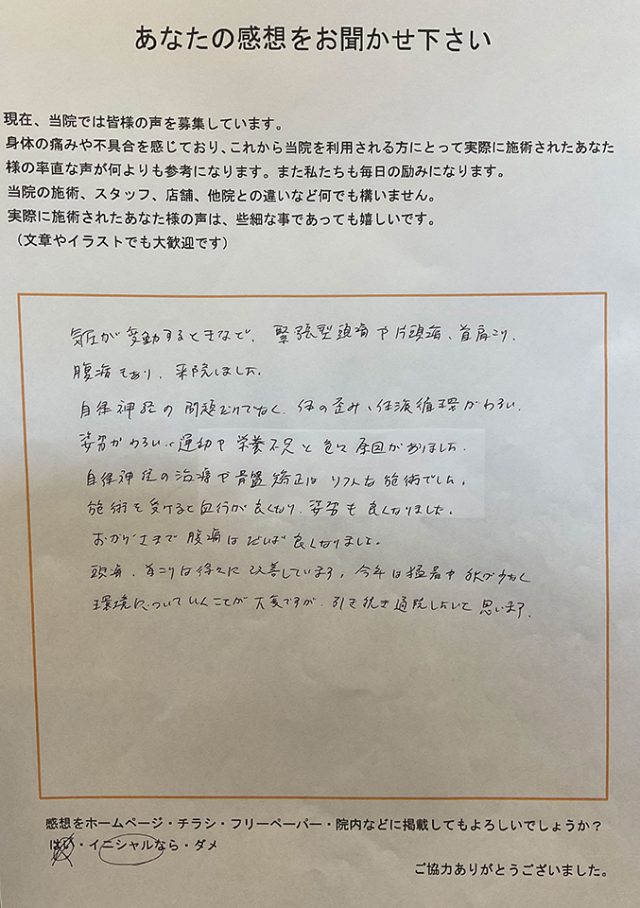 あなたの感想をお聞かせ下さい
現在、当院では皆様の声を募集しています。
身体の痛みや不具合を感じており、これから当院を利用される方にとって実際に施術されたあなた
様の率直な声が何よりも参考になります。また私たちも毎日の励みになります。
当院の施術、スタッフ、店舗、他院との違いなど何でも構いません。
実際に施術されたあなた様の声は、些細な事であっても嬉しいです。
（文章やイラストでも大歓迎です）
気圧が変動するときなど、緊張型頭痛や片頭痛、首肩こり、
腹痛もあり、来院しました。
自律神経の問題だけでなく、体の歪み、体液循環がわるい、
姿勢がわるい、運動や栄養不足と色々原因がありました。
自律神経の治療や骨盤矯正は ソフトな施術でした。
施術を受けると血行が良くなり、姿勢も良くなりました。
おかげさまで腹痛はだいぶ良くなりました。
頭痛、首こりは徐々に改善しています。今年は猛暑や秋が少なく
環境についていくことが大変ですが、引き続き通院したいと思います。
感想をホームページ・チラシ・フリーペーパー・院内などに掲載してもよろしいでしょうか？
はい・イニシャルなら・ダメ
ご協力ありがとうございました。